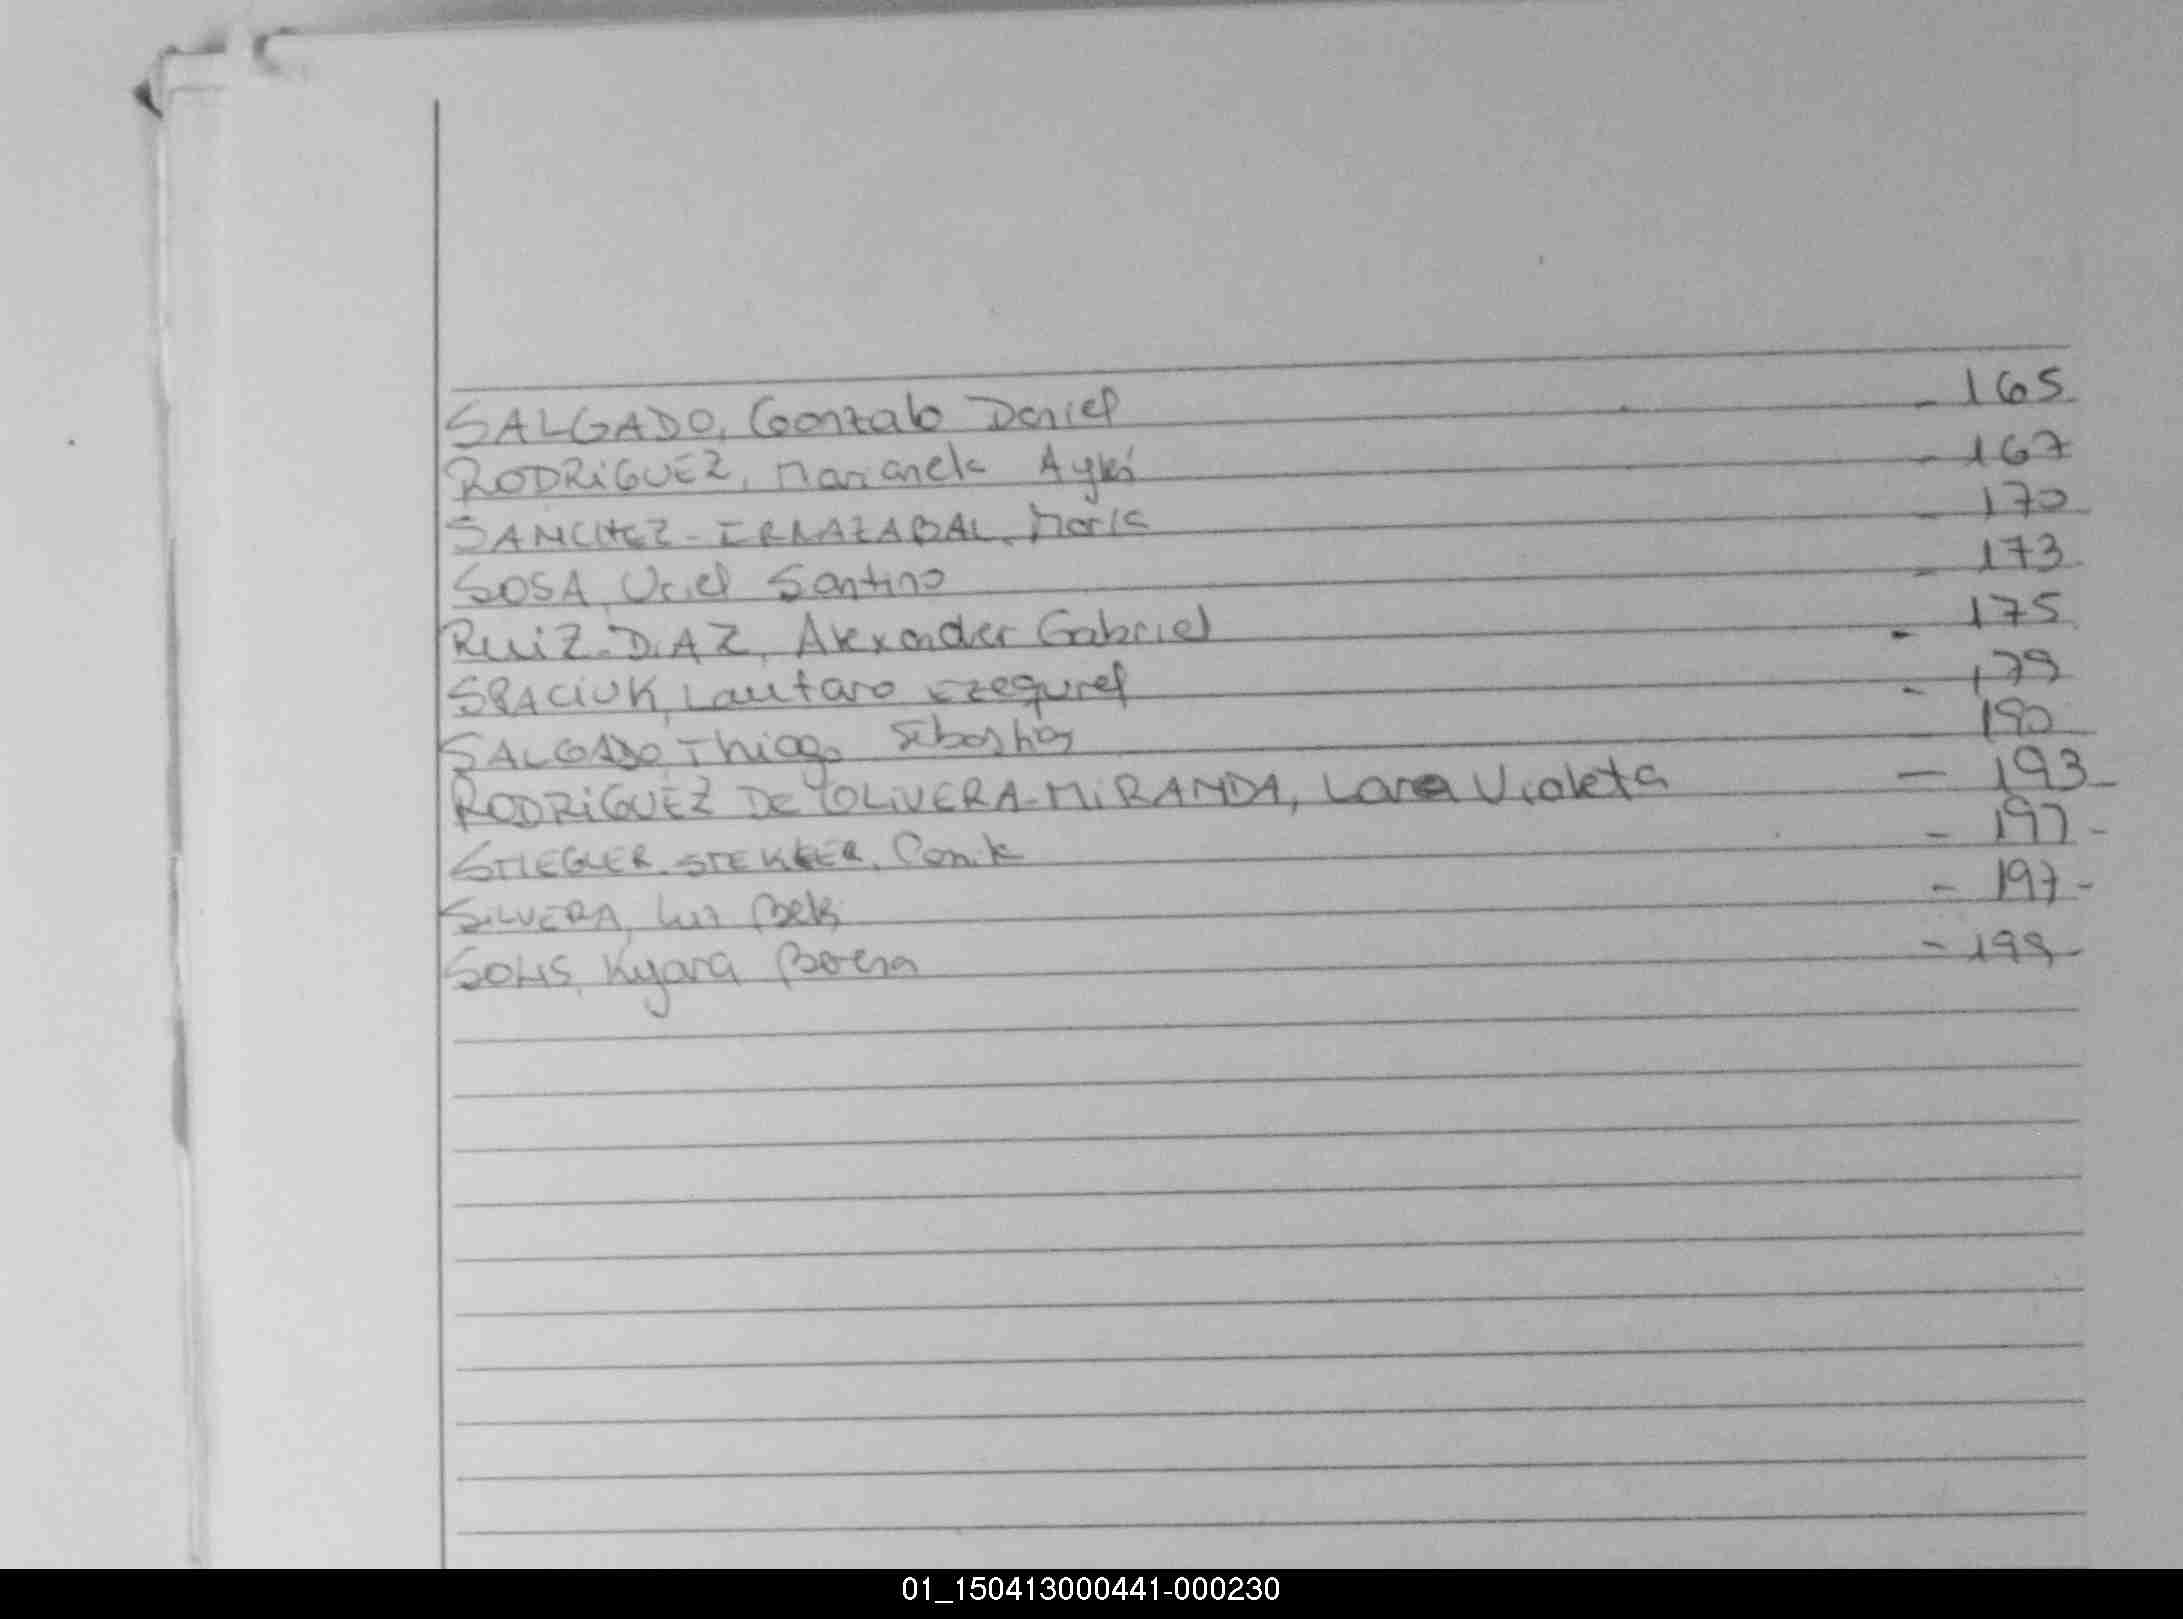 SALGADO, Gonzalo Daniel - 165
RODRiGUEZ, Marianela Aylén - 167
SANCHEZ-IRRAZABAL, María - 170
SOSA, Uriel Santino - 173
RUiZ-DIAZ, Alexander Gabriel - 175
SPACiUK, Lautaro Ezequiel - 179
SALGADO, Thiago Sebastián 190
RODRiGUEZ DE OLiVERA-MiRANDA, Lara Violeta - 193
STIEGLER-STEKLER, - 197 -
SiLVERA, Luz - 197 -
SOLIS, Kyara - 199
01_150413000441-000230